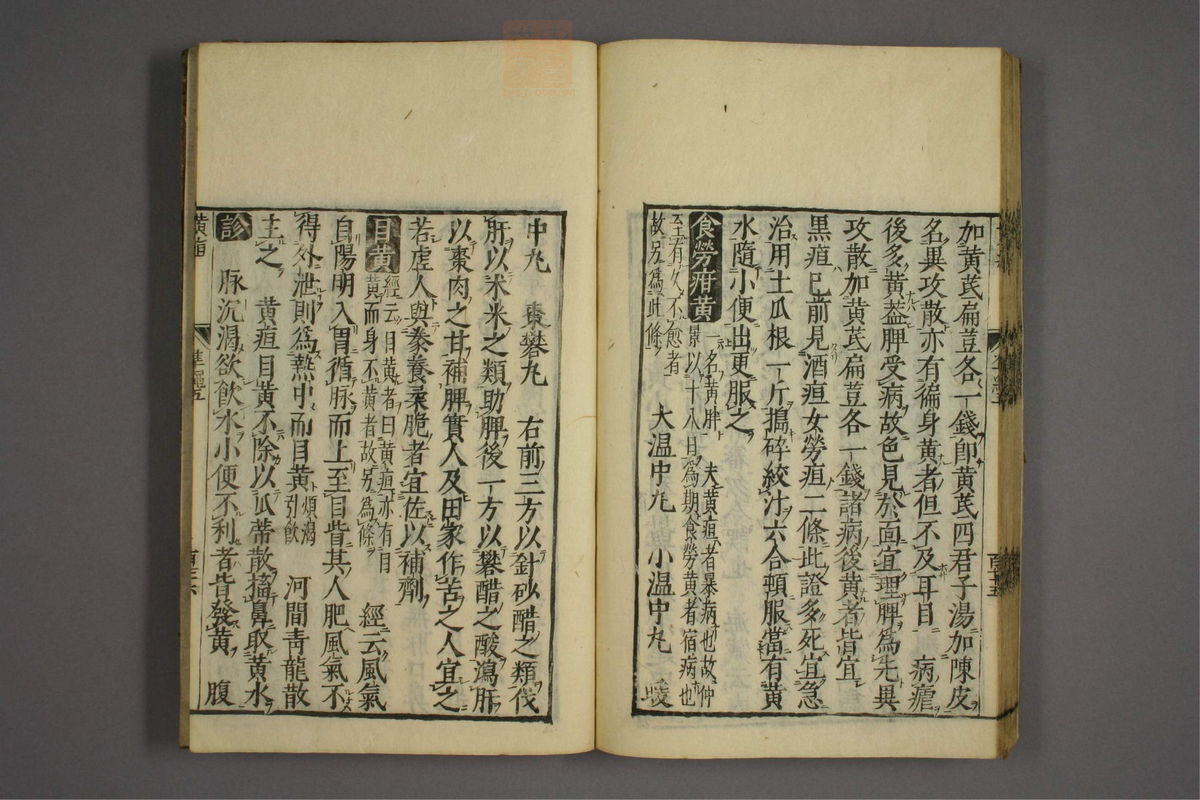 加黃芪扁荳各一錢卽黃芪四君子湯加陳皮
名異攻散亦有徧身黃者但不及耳目　病瘧
後多黃葢脾受病故色見於面宜理脾為先異
攻散加黃芪扁荳各一錢諸病後黃者皆宜
黑疸已前見酒疸女勞疸二條此證多死宜急
治用土瓜根一斤搗碎絞汁六合頓服當有黃
水隨小便出更服之
食勞疳黃 一名黃胖　夫黃疸者暴病也故仲
景以十八日為期食勞黃者宿病也
至有久不愈者
故另爲此條　大溫中丸　小溫中丸
中丸　棗礬丸　右前三方以針砂醋之類伐
肝以米米之類助脾後一方以礬醋之酸瀉肝
以棗肉之甘補脾實人及田家作苦之人宜之
若虛人與豢養柔脆者宜佐以補劑
目黃 經云目黃者曰黃疸亦有目
黃而身不黃者故另為條　經云風氣
自陽明入胃循脉而上至目眥其人肥風氣不
得外泄則為熱中而目黃 煩渴
引飲　河間青龍散
主之　黃疸目黃不除以瓜蒂散搐鼻取黃水
診　脉沉渴欲飲水小便不利者皆發黃　腹